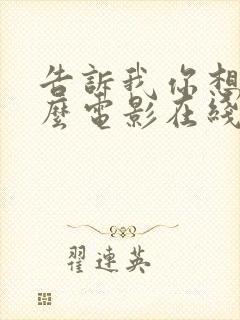 告訴我你想
麼電影在綫
翟連英